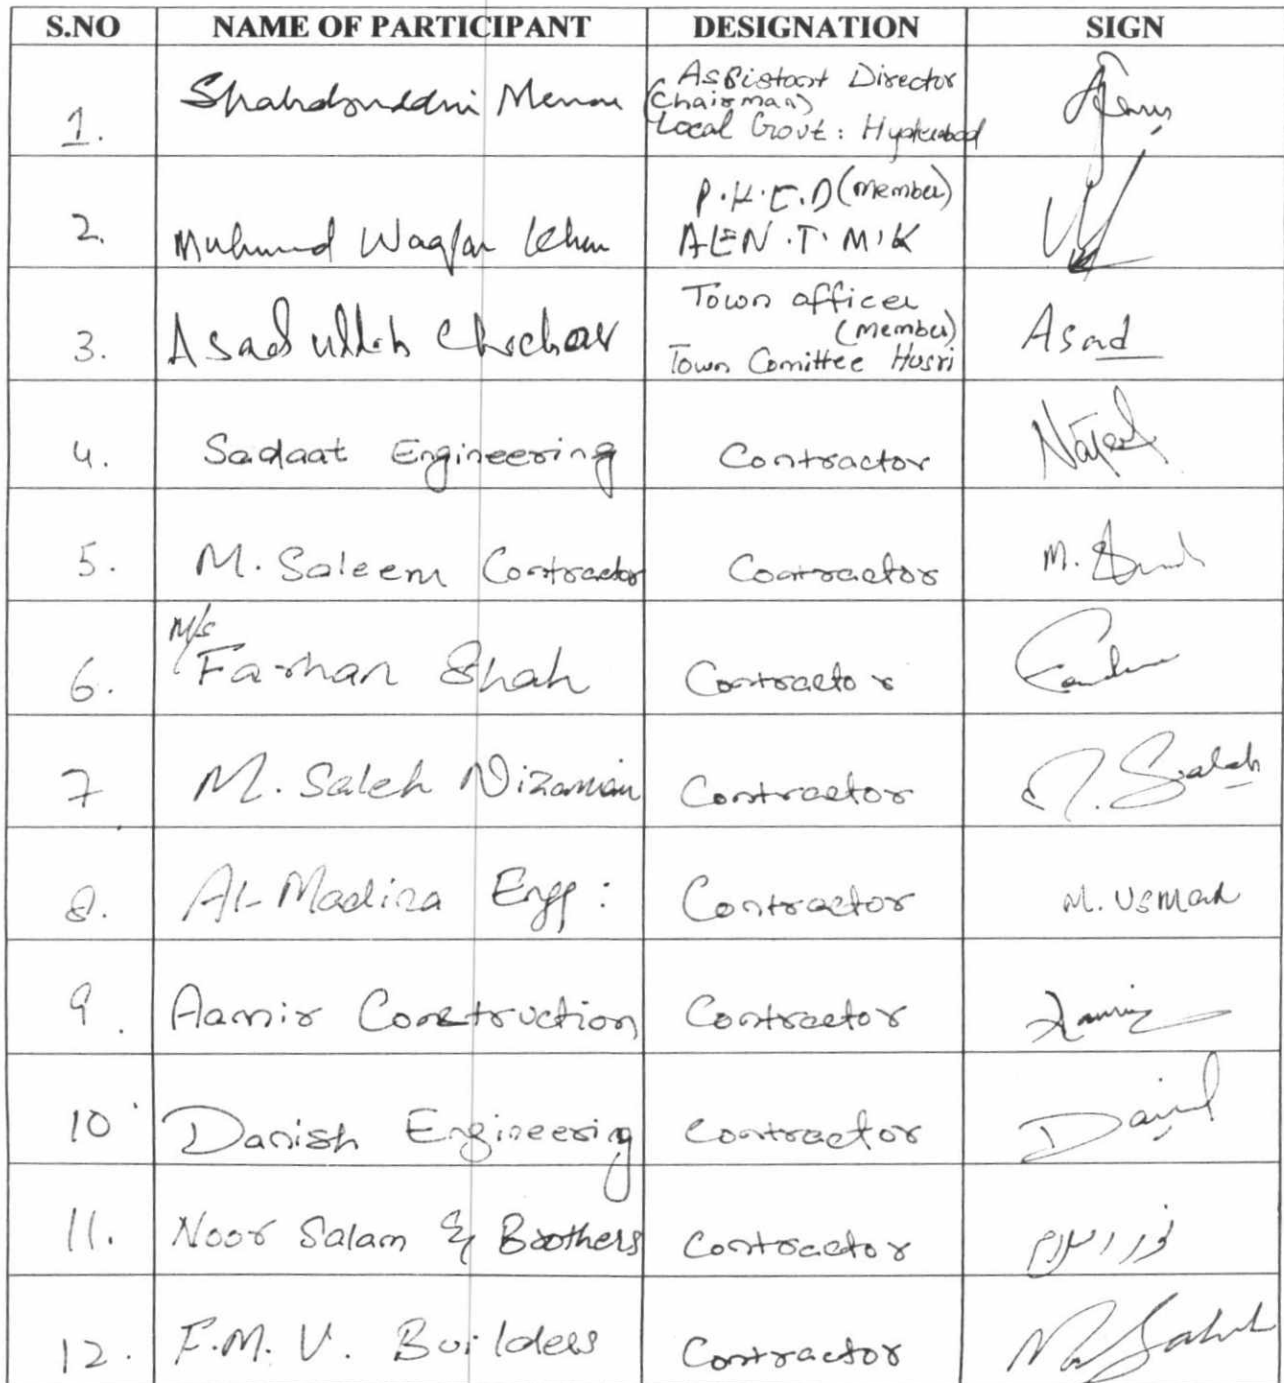 S.NO NAME OF PARTICIPANT DESIGNATION SIGN
1. Shahabuddin Memon Assistant Director
(Chairman)
Local Govt: Hyderabad
2. Muhmad Waqar Khan P.H.E.D (member)
AEN.T.M.K
3. Asadullah Chachar Town officer
(member)
Town Comittee Husri
Asad
4. Sadaat Engineering Contractor
5. M. Saleem Contractor Contractor M.
6. M/s Farhan Shah Contractor
7 M. Saleh Nizamani Contractor M. Saleh
8. Al-Madina Engg: Contractor M. Usman
9. Aamir Construction Contractor Aamir
10 Danish Engineering Contractor
11. Noor Salam & Brothers Contractor نور اسلام
12. F.M.V. Builders Contractor